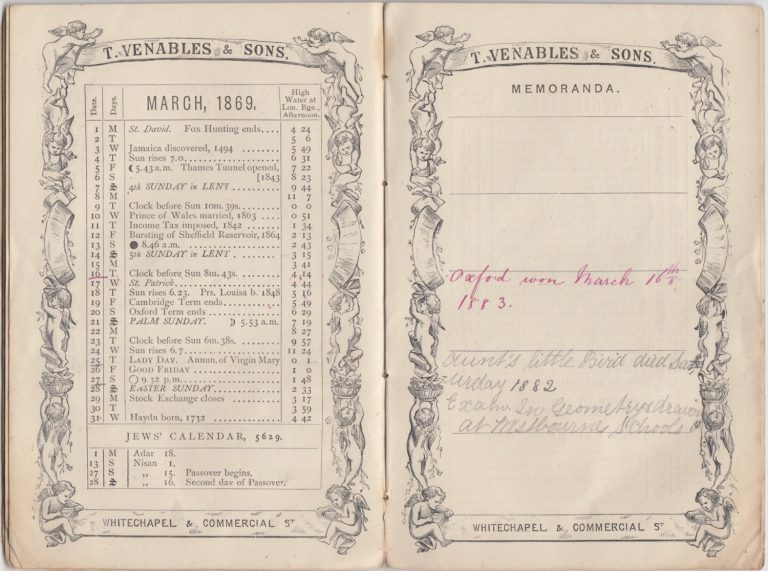 T. VENABLES & SONS.
Date. Days. MARCH, 1869. High Water at Lon. Bge., Afternoon.
1 M St. David. Fox Hunting ends.... 4 24
2 T 5 6
3 W Jamaica discovered, 1494 ........ 5 49
4 T Sun rises 7.0.................... 6 31
5 F ☾ 5.43 a.m. Thames Tunnel opened, 7 22
6 S [1843 8 23
7 S 4th SUNDAY in LENT .......... 9 44
8 M 11 7
9 T Clock before Sun 10m. 39s.......... 0 0
10 W Prince of Wales married, 1863 .... 0 51
11 T Income Tax imposed, 1842 ........ 1 34
12 F Bursting of Sheffield Reservoir, 1864 2 13
13 S ● 8.46 a.m. .................... 2 43
14 S 5th SUNDAY in LENT .......... 3 15
15 M 3 41
16 T Clock before Sun 8m. 43s........... 4 14
17 W St. Patrick...................... 4 44
18 T Sun rises 6.23. Prs. Louisa b. 1848 5 16
19 F Cambridge Term ends.............. 5 49
20 S Oxford Term ends ................ 6 29
21 S PALM SUNDAY. ☽ 5.53 a.m. 7 19
22 M 8 27
23 T Clock before Sun 6m. 38s........... 9 57
24 W Sun rises 6.7.................... 11 24
25 T LADY DAY. Annun. of Virgin Mary 0 1
26 F GOOD FRIDAY .................. 1 0
27 S ○ 9.32 p.m....................... 1 48
28 S EASTER SUNDAY................ 2 33
29 M Stock Exchange closes ............ 3 17
30 T 3 59
31 W Haydn born, 1732 ................ 4 42
JEWS' CALENDAR, 5629.
1 M Adar 18.
13 S Nisan 1.
27 S ,, 15. Passover begins.
28 S ,, 16. Second day of Passover.
WHITECHAPEL & COMMERCIAL ST
T. VENABLES & SONS.
MEMORANDA.
Oxford won March 16th
1883.
Aunt's little Bird died Sat
urday 1882
Exam. In Geometry & drawin
at Westbourne Schools
WHITECHAPEL & COMMERCIAL ST